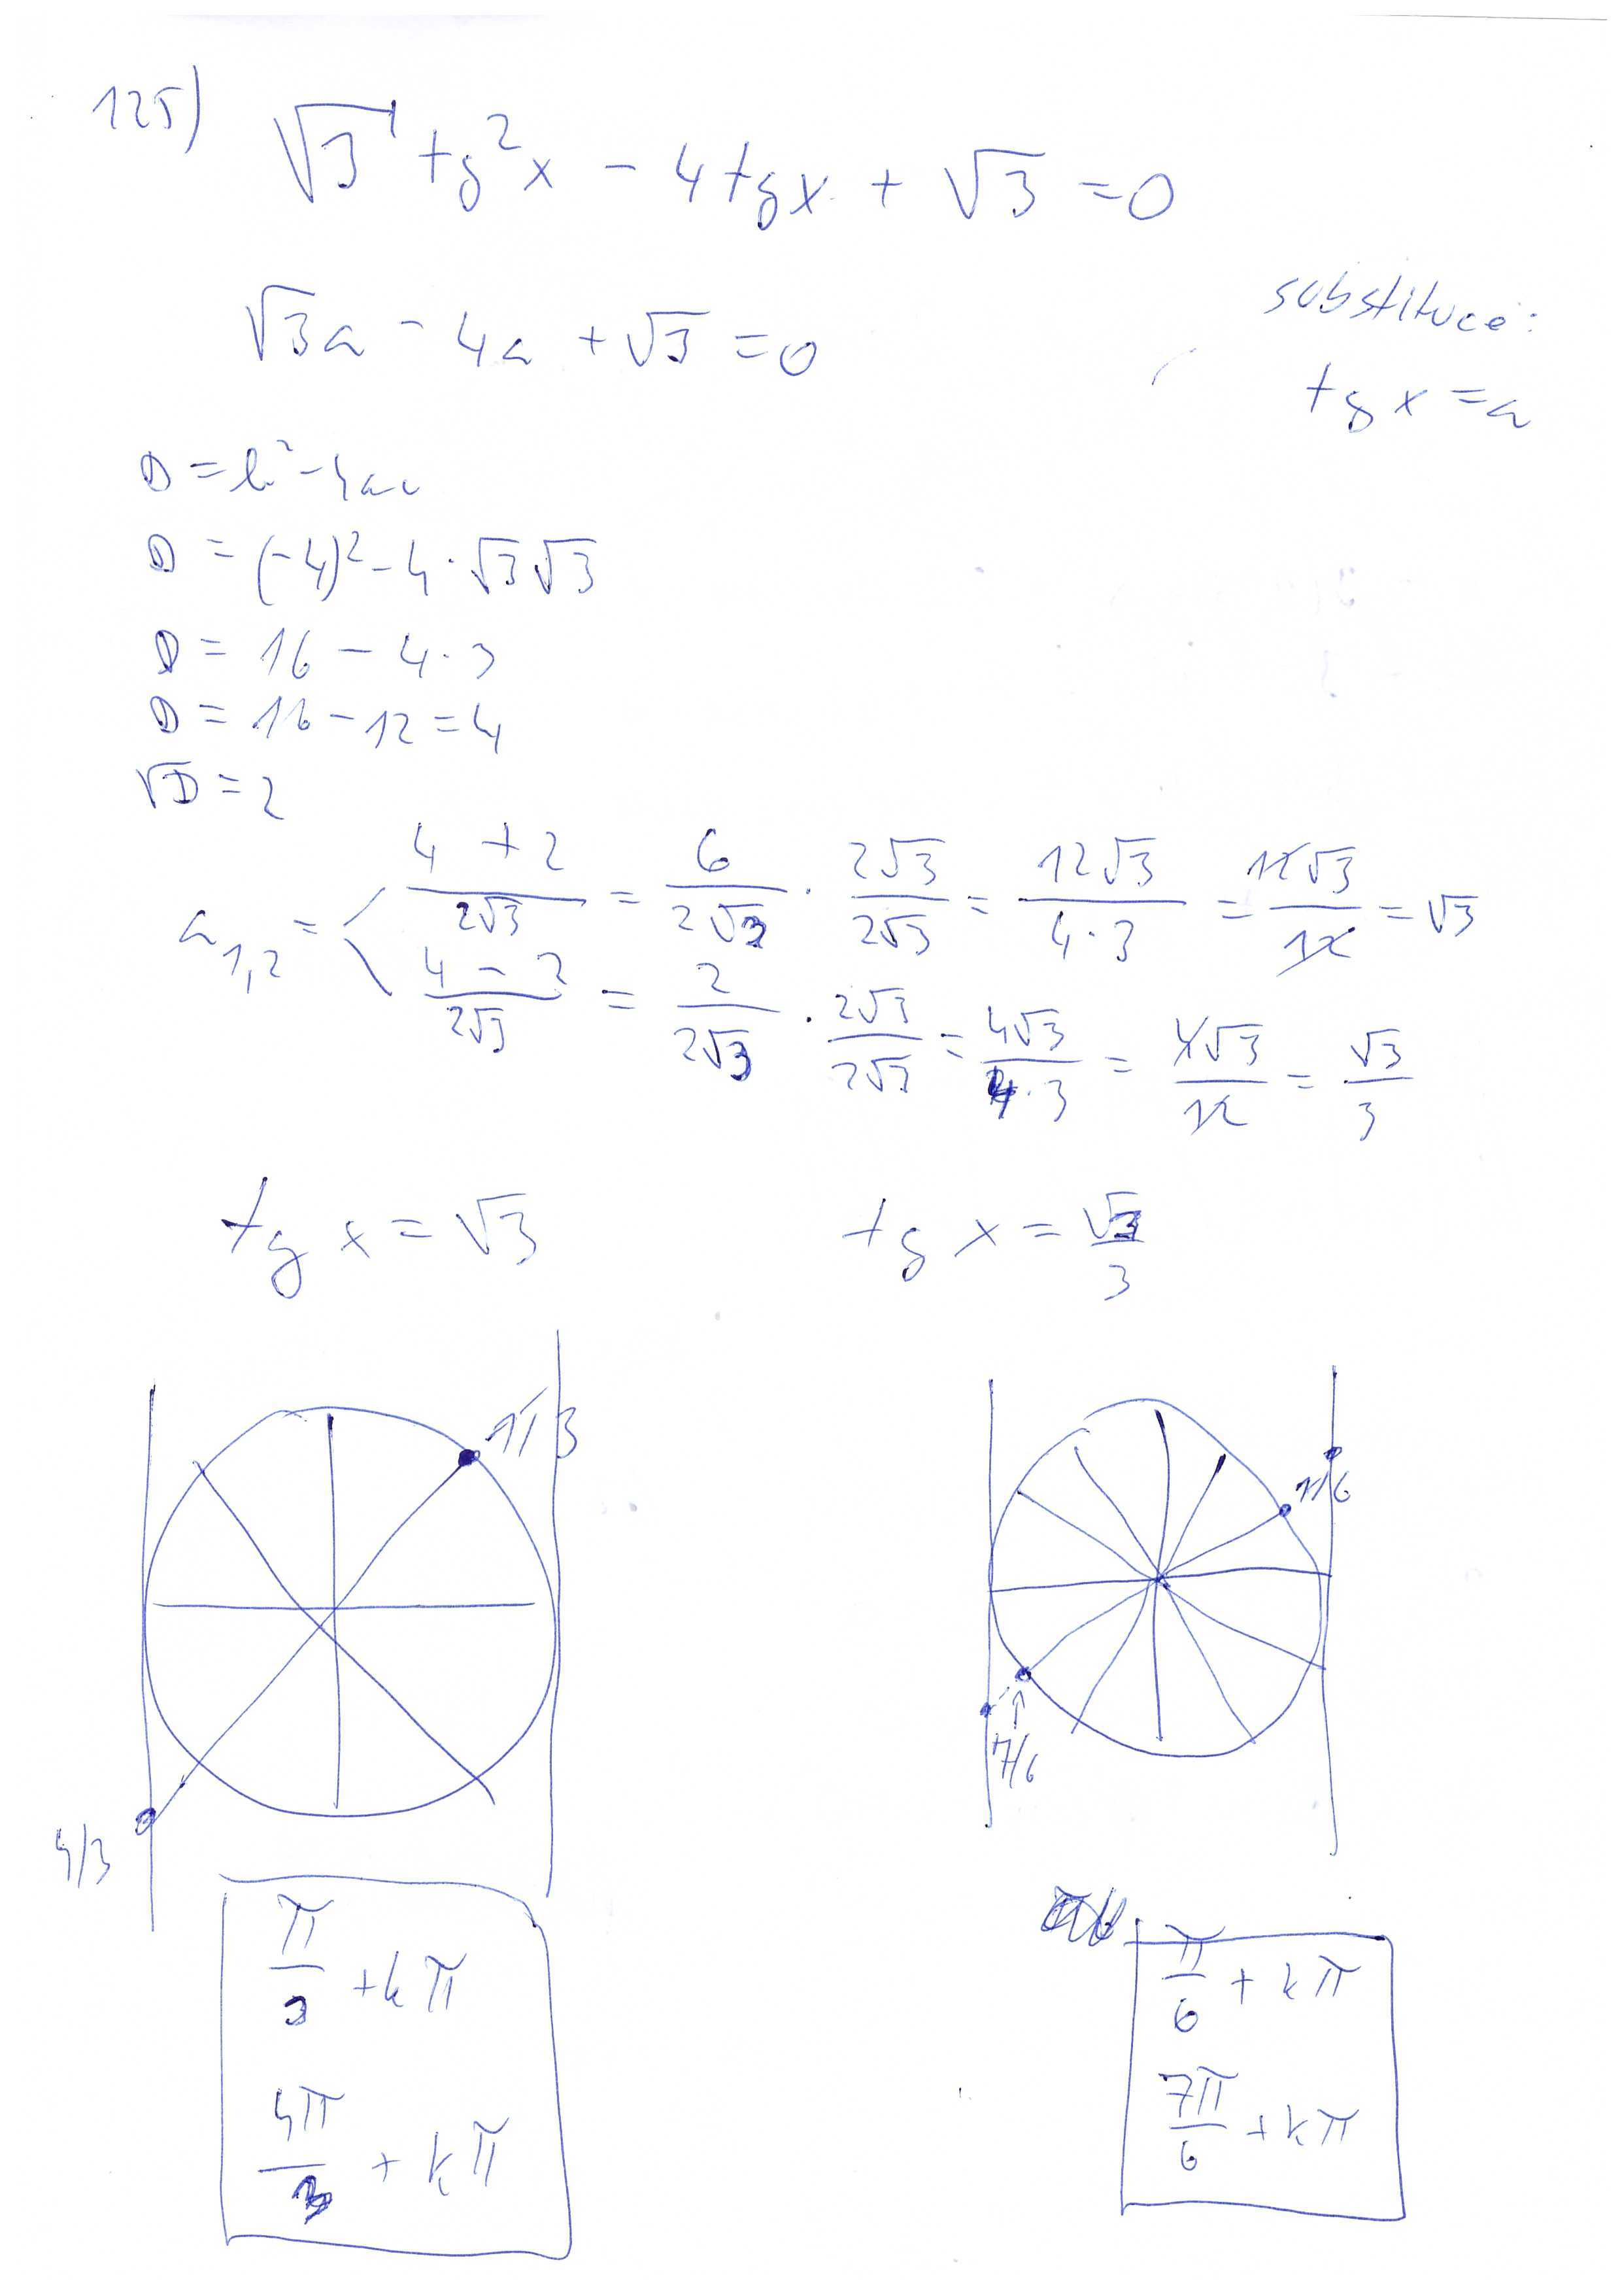 125) √3 tg²x - 4tgx + √3 = 0
substituce:
√3a - 4a + √3 = 0
tgx = a
D = b² - 4ac
D = (-4)² - 4·√3√3
D = 16 - 4·3
D = 16 - 12 = 4
√D = 2
a1,2 = < (4 + 2)/(2√3) = 6/(2√3) · (2√3)/(2√3) = (12√3)/(4·3) = (12√3)/12 = √3
(4 - 2)/(2√3) = 2/(2√3) · (2√3)/(2√3) = (4√3)/(4·3) = (4√3)/12 = √3/3
tg x = √3 tg x = √3/3
π/3
π/6
7/6
4/3
π/3 + kπ
4π/3 + kπ
π/6 + kπ
7π/6 + kπ